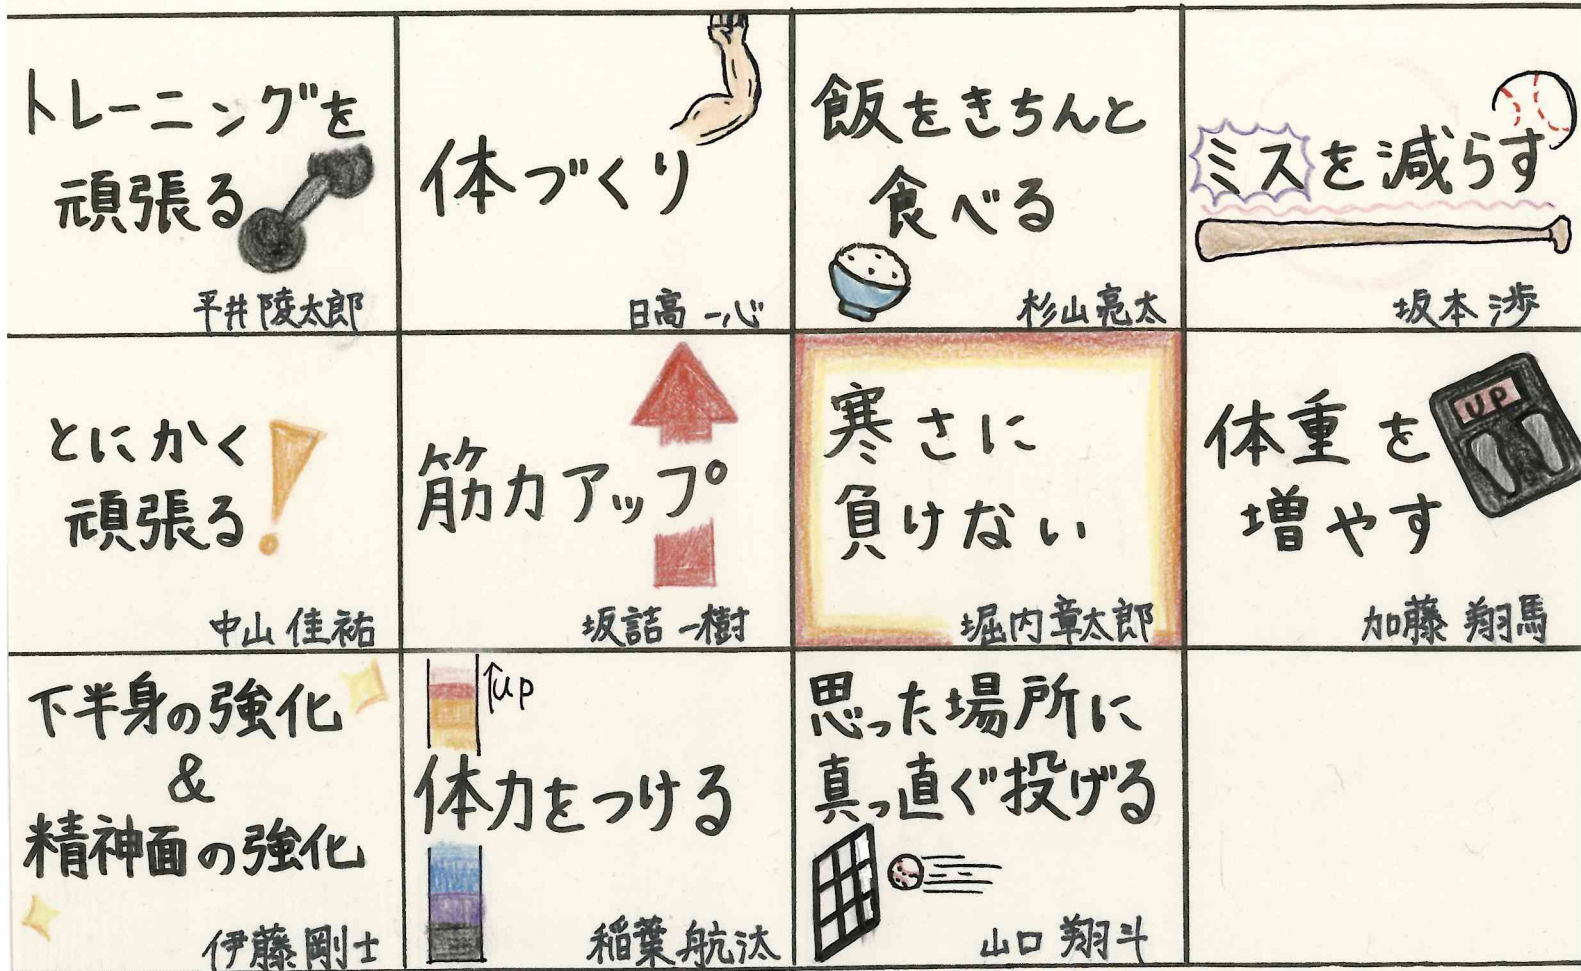 トレーニングを
頑張る
平井陵太郎
体づくり
日高 一心
飯をきちんと
食べる
杉山亮太
ミスを減らす
坂本 渉
とにかく
頑張る!
中山 佳祐
筋力アップ
坂詰 一樹
寒さに
負けない
堀内章太郎
体重を
増やす
UP
加藤 翔馬
下半身の強化
&
精神面の強化
伊藤剛士
↑up
体力をつける
稲葉 航汰
思った場所に
真っ直ぐ投げる
山口 翔斗